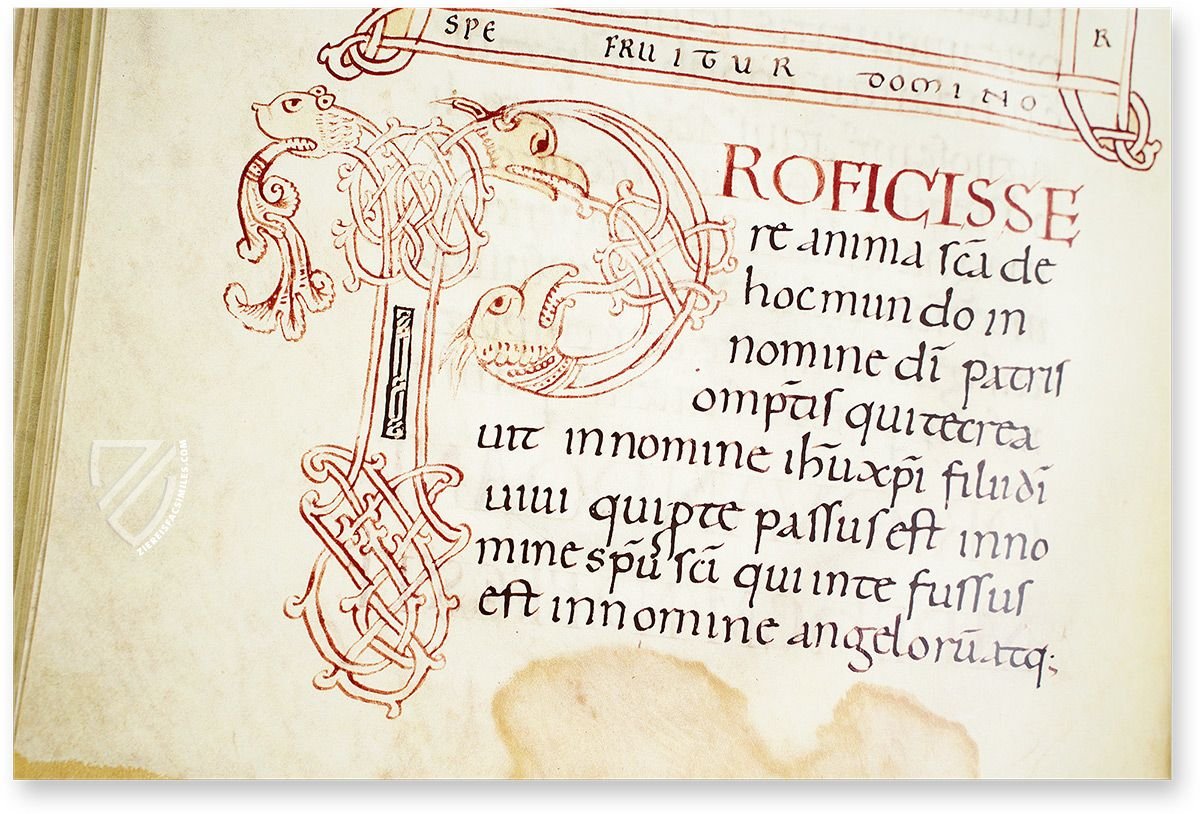 SPE FRUITUR DOMINO R
PROFICISSE
re anima sc̄a de
hocmundo in
nomine dī patris
omp̄tis quitecrea
uit innomine ihūxp̄i filiidī
uiui quip̱te passusest inno
mine sp̄u scī quiinte fussus
est innomine angelorū atq;
ZIEREISFACSIMILES.COM